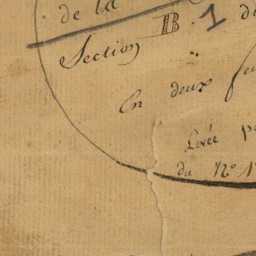 de la
Section B. 1 d
En deux feu
Levée p
du N° 1